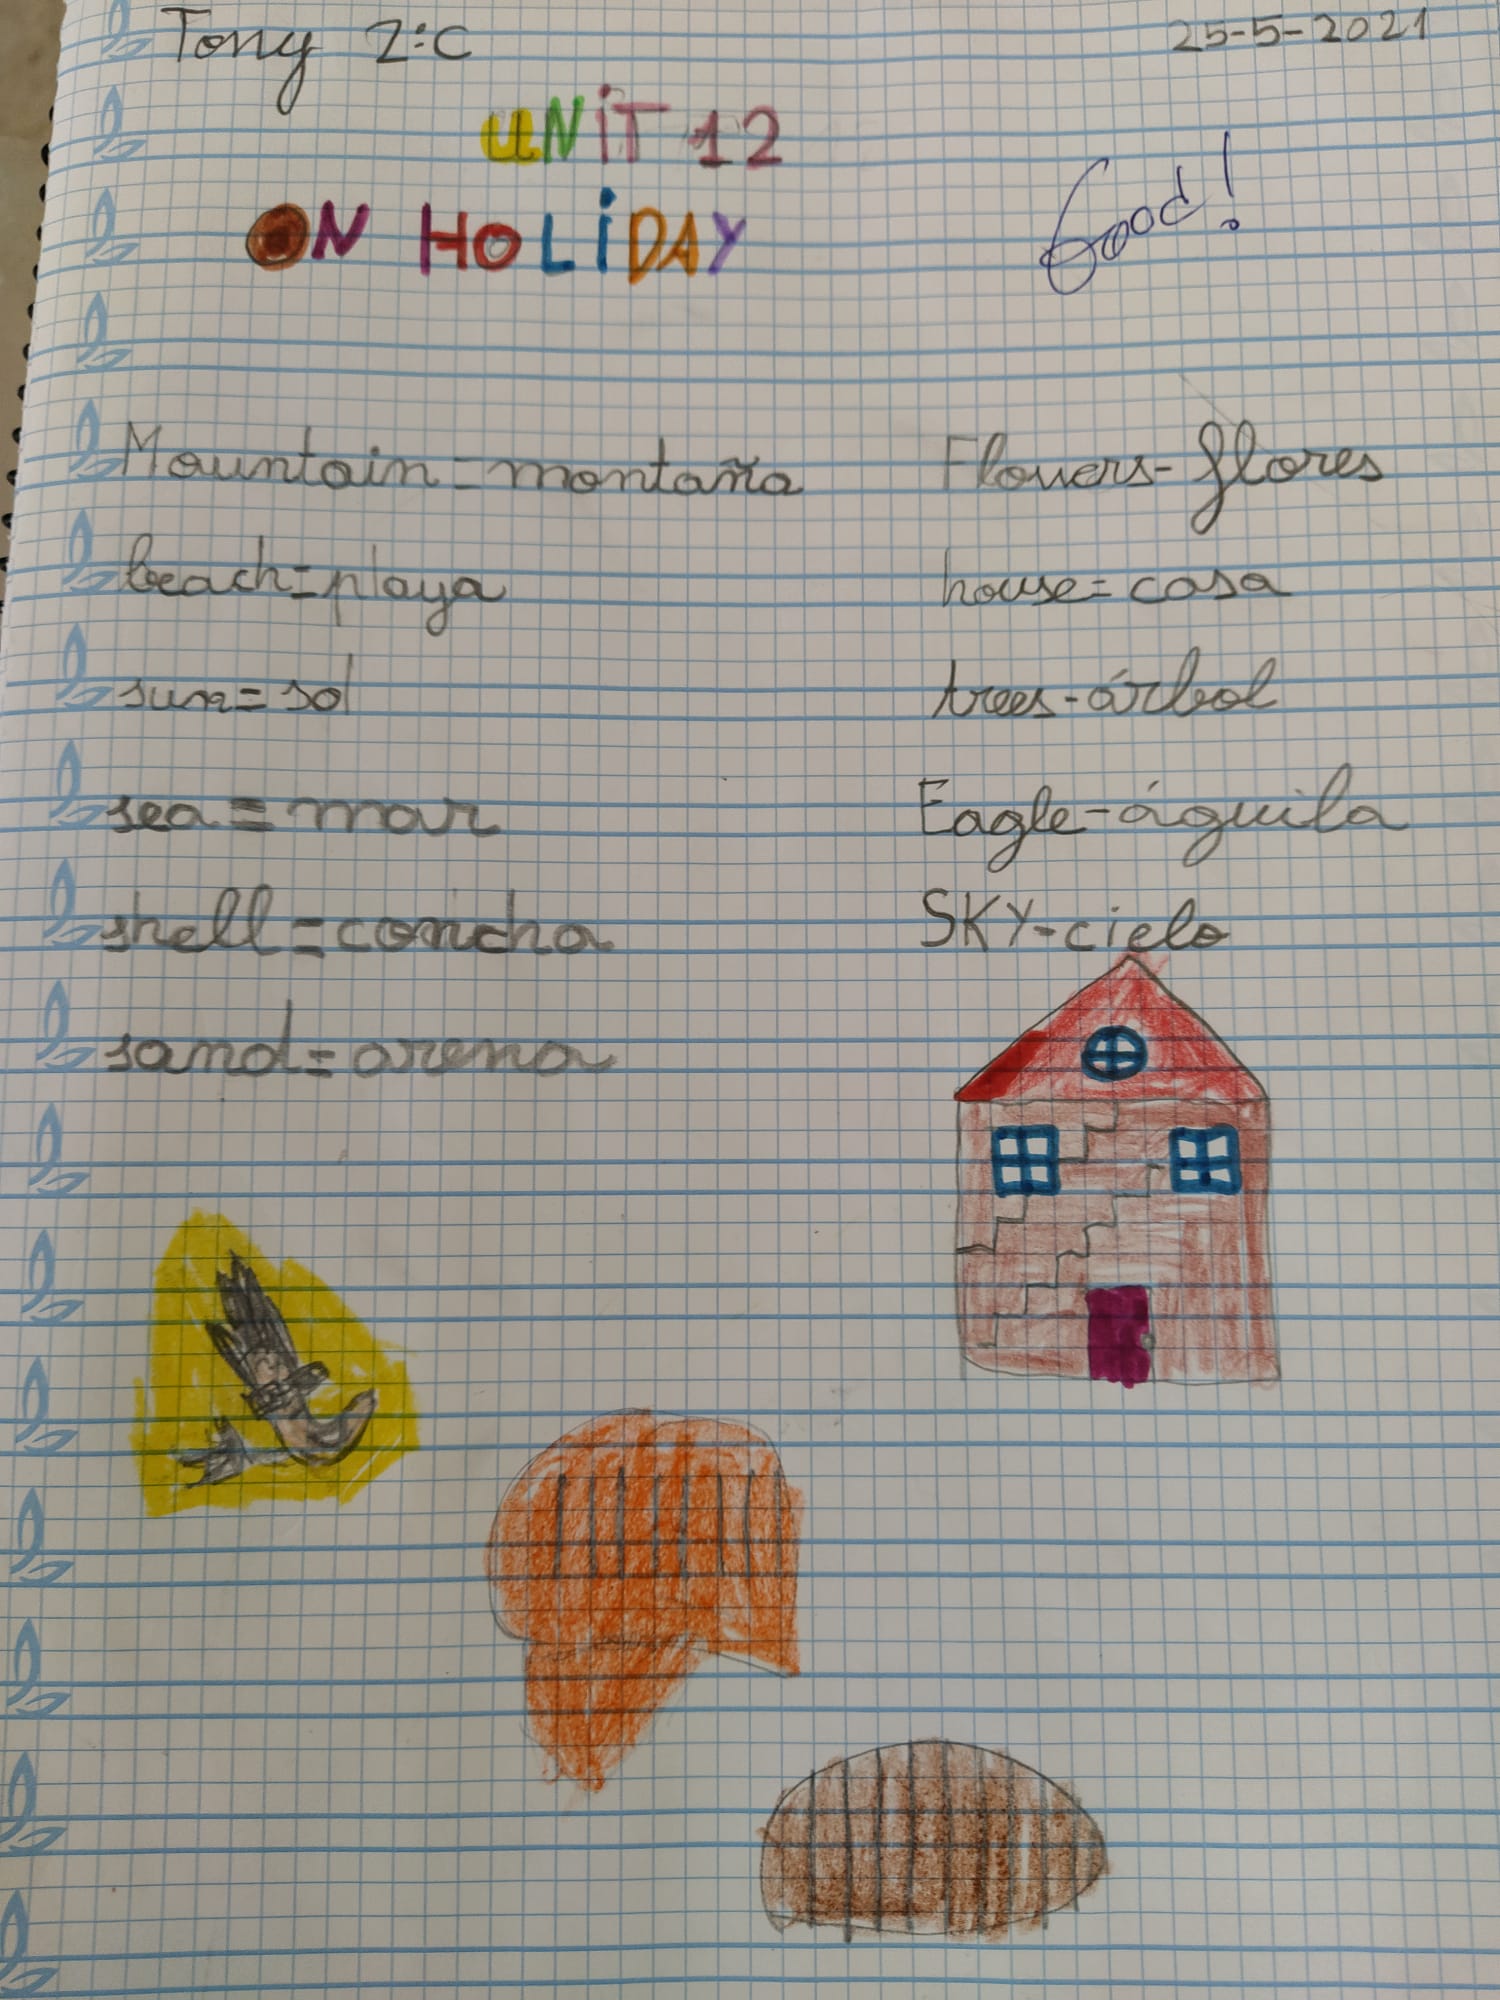 Tony 2ºC
25-5-2021
UNIT 12
ON HOLIDAY
Good!
Mountain=montaña
beach=playa
sun=sol
sea=mar
shell=concha
sand=arena
Flowers-flores
house=casa
trees-árbol
Eagle-águila
SKY-cielo